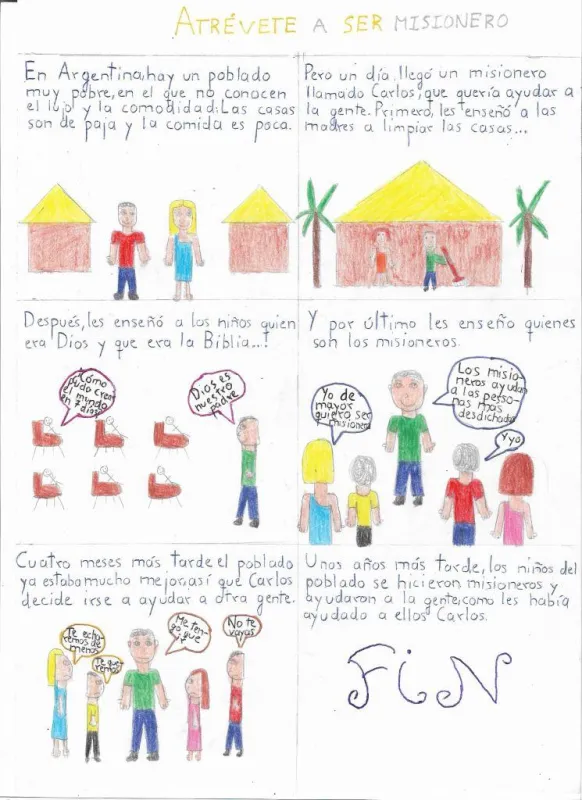 ATRÉVETE A SER MISIONERO
En Argentina, hay un poblado
muy pobre, en el que no conocen
el lujo y la comodidad. Las casas
son de paja y la comida es poca.
Pero un día, llegó un misionero
llamado Carlos, que quería ayudar a
la gente. Primero, les enseñó a las
madres a limpiar las casas...
Después, les enseñó a los niños quien
era Dios y que era la Biblia...!
¿Cómo
pudo crear
el mundo
en 7
días?
Dios es
nuestro
padre
Y por último les enseño quienes
son los misioneros.
Yo de
mayor
quiero ser
misionera
Los misio-
neros ayudan
a las perso-
nas mas
desdichadas
Y yo
Cuatro meses más tarde, el poblado
ya estaba mucho mejor, así que Carlos
decide irse a ayudar a otra gente.
Te echa-
remos de
menos
Te que-
remos
Me ten-
go que
ir
No te
vayas
Unos años más tarde, los niños del
poblado se hicieron misioneros y
ayudaron a la gente, como les había
ayudado a ellos Carlos.
FiN